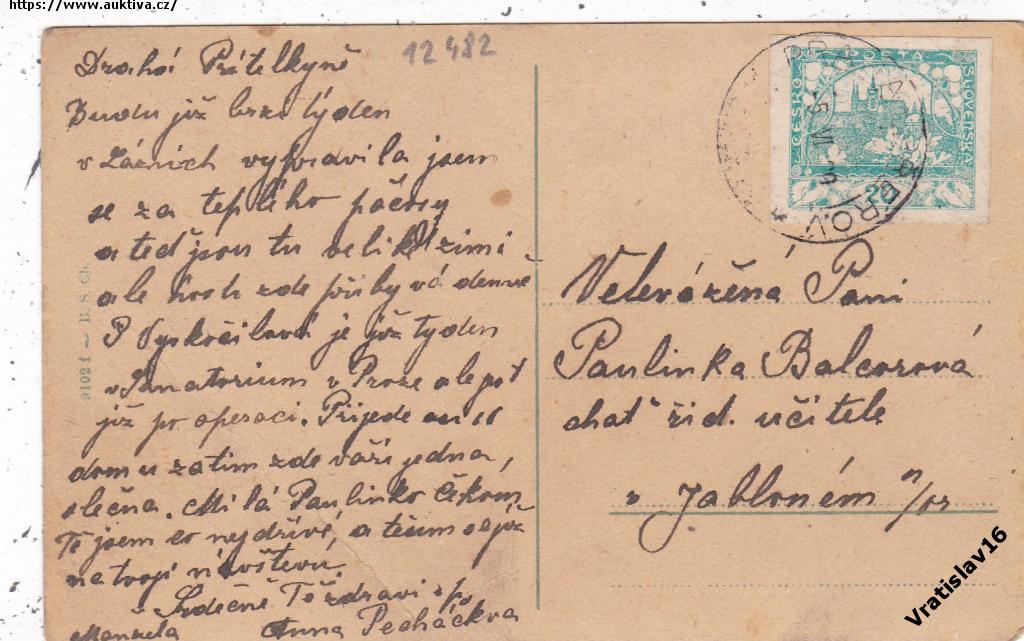 https://www.auktiva.cz/
12482
Drahá Přítelkyně
Budu již brzo týden
v Lázních vypravila jsem
se za teplého počasy
a teď jsou tu veliké zimi
ale hostů zde přibyvá denně
P Vyskočilová je již tyden
v Sanatorium v Praze ale
již po operaci. Přijede
domu zatim zde vaři jedna
slečna. Milá Paulinko čekam
Tě jsem co nejdříve, a těšim se již
na tvoji návštevu
Srdečně Tě zdravi
Manuela Anna Pecháčkva
9102 f — B. s. ch.
POSTA
ČESKO
SLOVENSKÁ
20
Velevážená Pani
Paulinka Balcarová
choť řid. učitele
v Jabloném n/or
Vratislav16